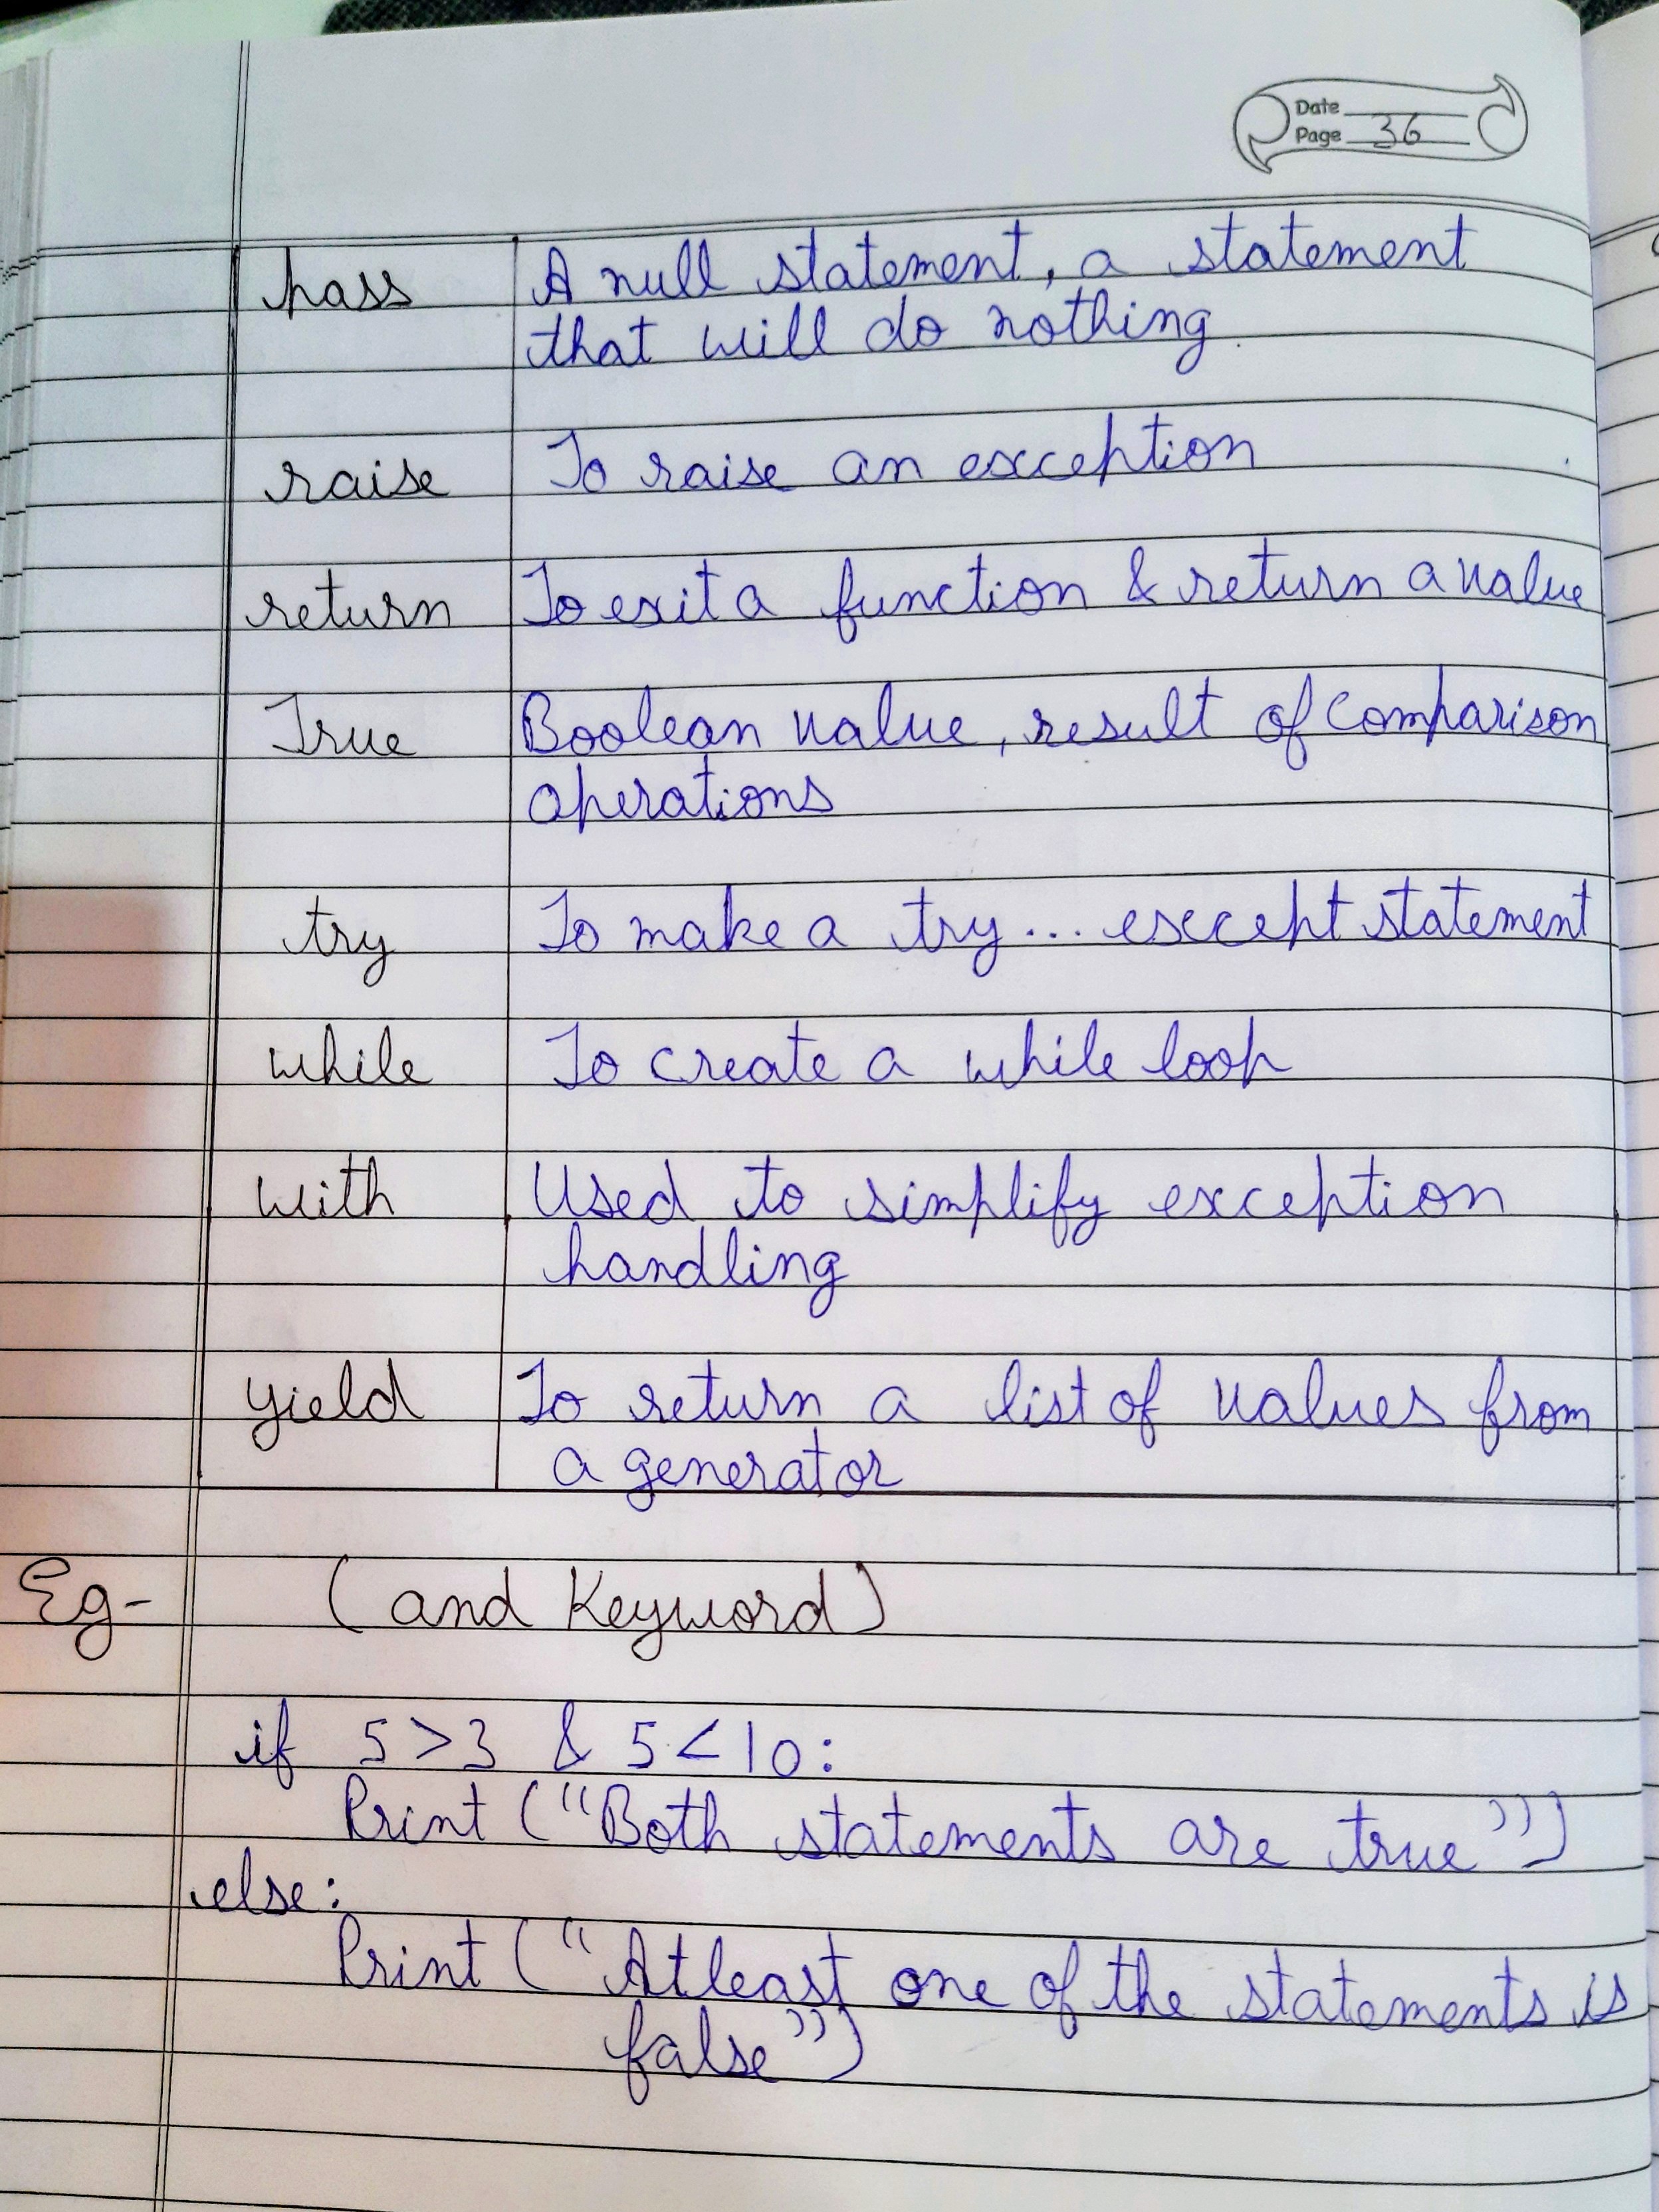 Date
Page 36
pass A null statement, a statement
that will do nothing.
raise To raise an exception
return To exit a function & return a value
True Boolean value, result of comparison
operations
try To make a try... except statement
while To create a while loop
with Used to simplify exception
handling
yield To return a list of values from
a generator
Eg- (and Keyword)
if 5>3 & 5<10:
Print ("Both statements are true")
else:
Print ("Atleast one of the statements is
false")